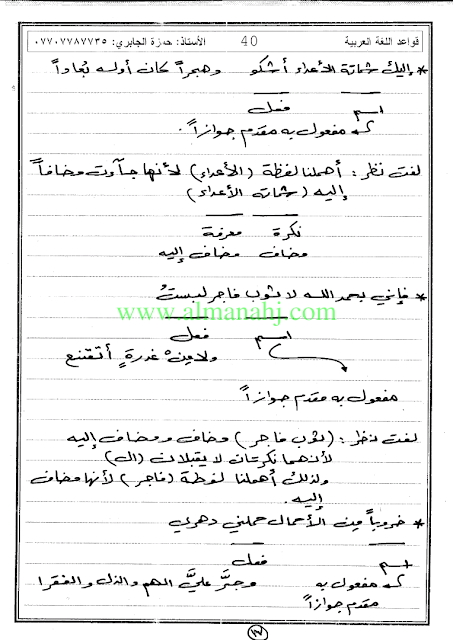 قواعد اللغة العربية 40 الأستاذ: حمزة الجابري: ٠٧٧٠٧٧٨٧٧٣٥
* إليك شماتة الأعداء أشكو وهجراً كان أوله بُعاداً
اسم فعل
مفعول به مقدم جوازاً.
لفت نظر: أهملنا لفظة (الأعداء) لأنها جاءت مضافاً
إليه (شماتة الأعداء)
نكرة معرفة
مضاف مضاف إليه
* فإني بحمد الله لا ثوب فاجر لبستُ
www.almanahj.com
اسم فعل
ولا من غدرةٍ أتقنع
مفعول به مقدم جوازاً
لفت نظر: (ثوب فاجر) مضاف ومضاف إليه
لأنهما نكرتان لا يقبلان (ال)
ولذلك أهملنا لفظة (فاجر) لأنها مضاف
إليه.
* ضروباً من الأحمال حملني دهري
اسم فعل
مفعول به وجرَّ عليَّ الهم والذل والفقرا
مقدم جوازاً